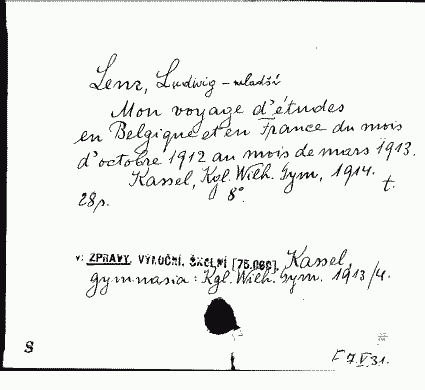 Lenz, Ludwig - mladší
Mon voyage d'études
en Belgique et en France du mois
d'octobre 1912 au mois de mars 1913.
Kassel, Kgl. Wilh. Gym, 1914.
28 p. 8° t.
v: ZPRÁVY, VÝROČNÍ, ŠKOLNÍ [75.060]. Kassel,
gymnasia: Kgl. Wilh. Gym. 1913/4.
S
7.V.31.